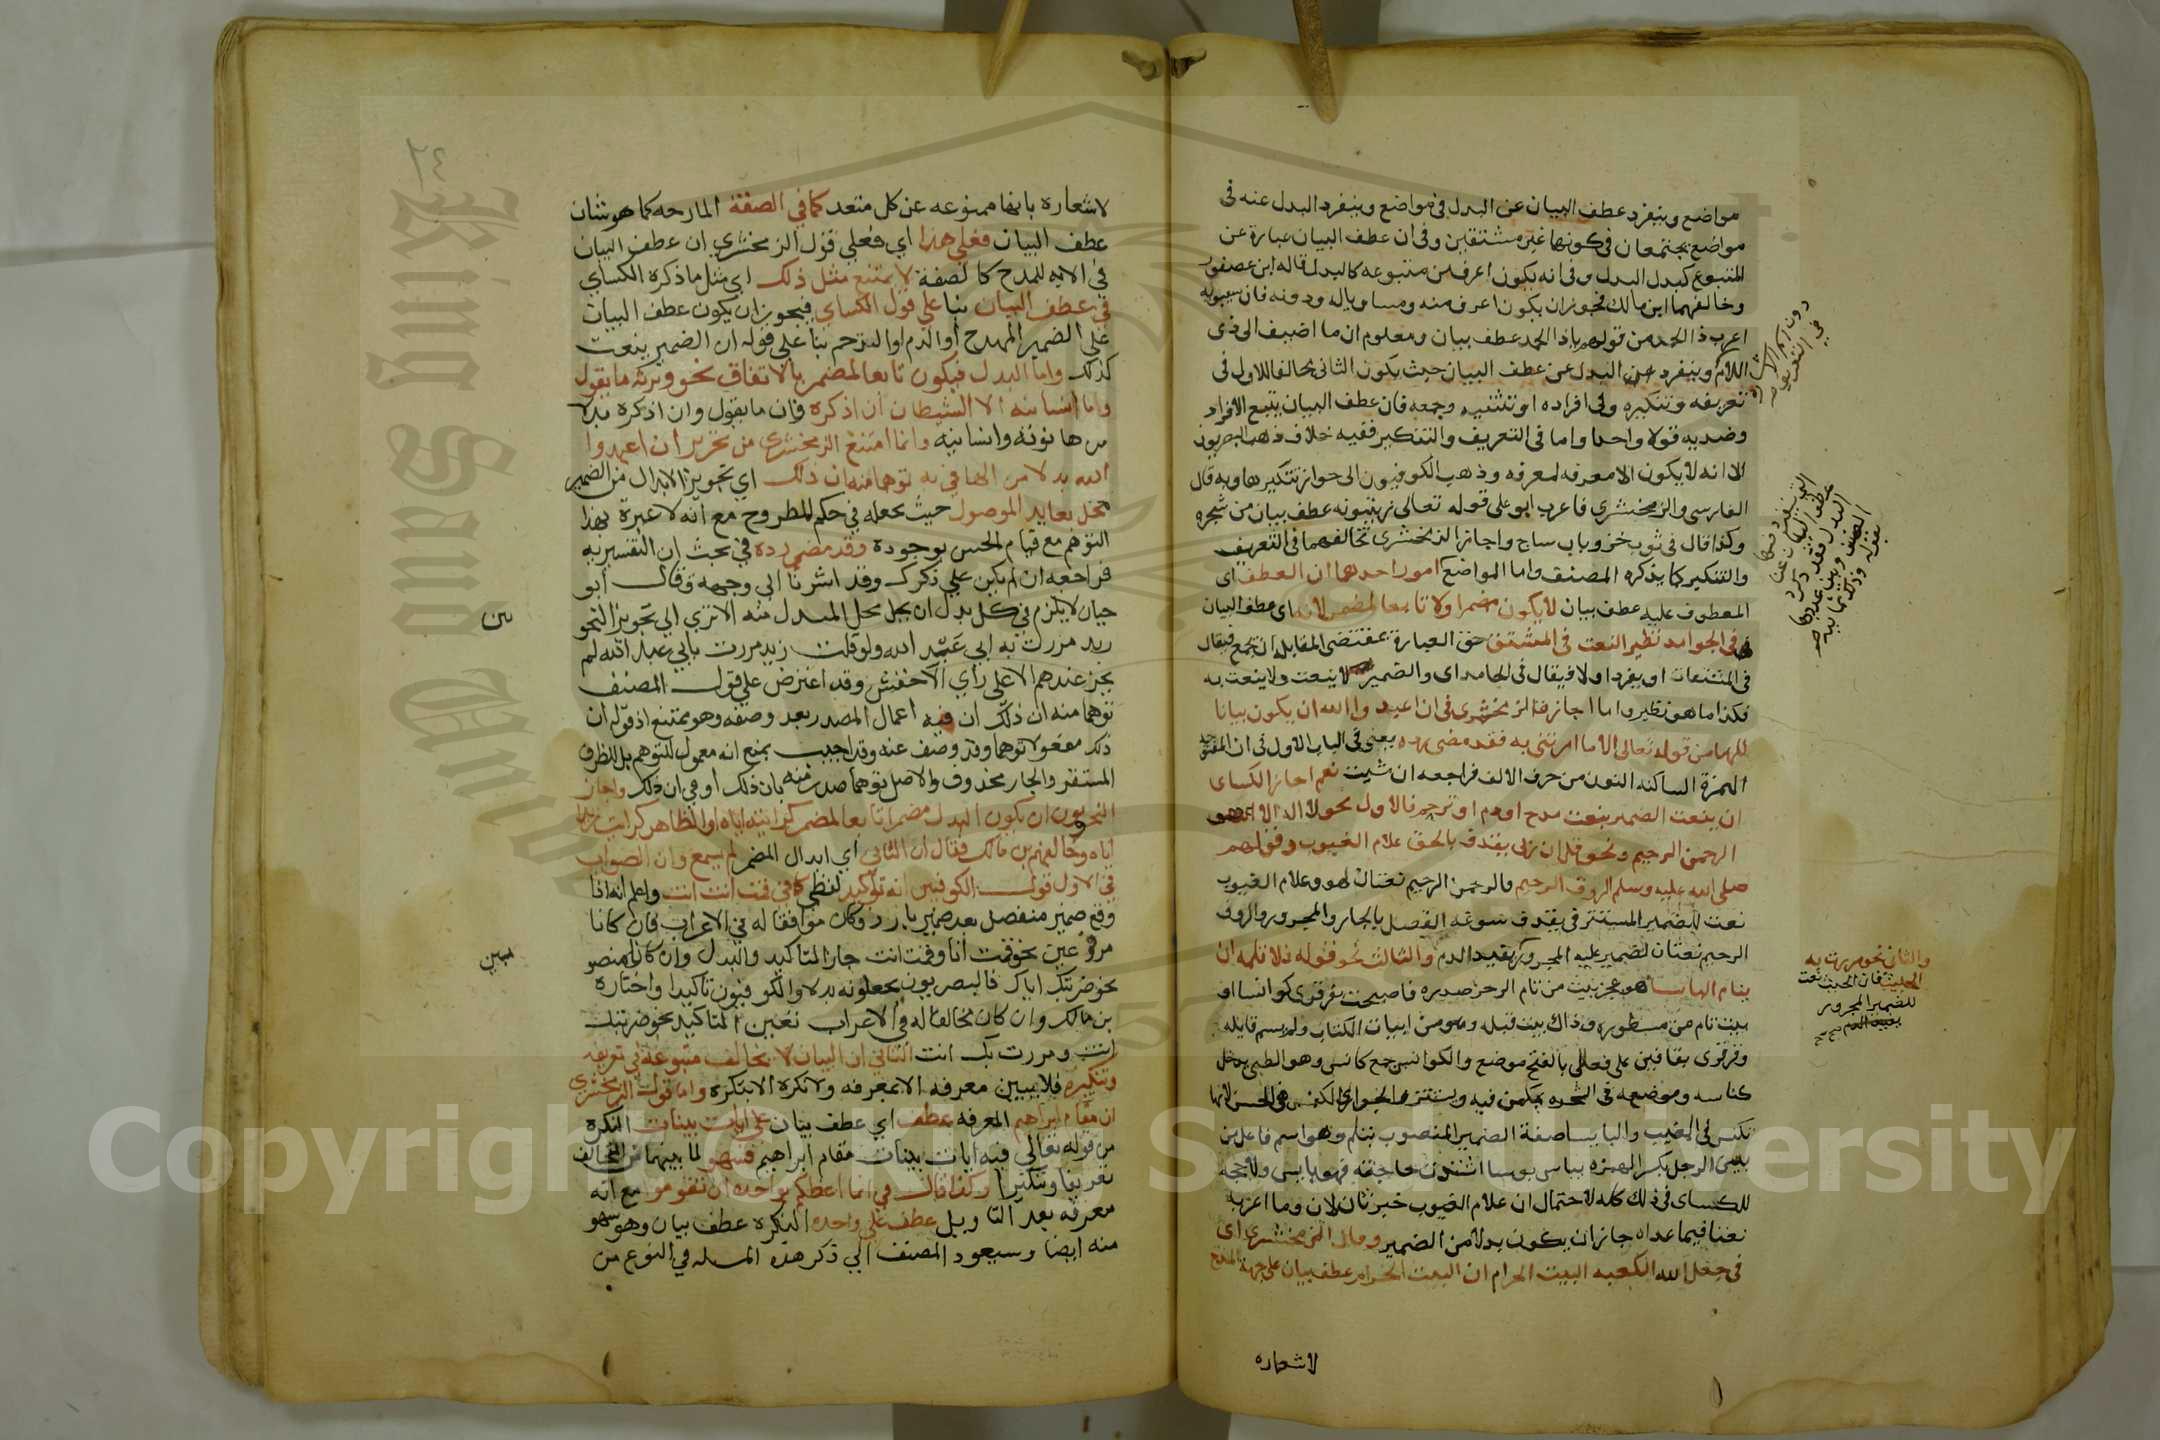 مواضع وينفرد عطف البيان عن البدل في مواضع وينفرد البدل عنه في
مواضع يجتمعان في كونهما غير مشتقين وفي ان عطف البيان عبارة عن
المتبوع كبدل البدل وفي انه يكون اعرف من متبوعه كالبدل قاله ابن عصفور
وخالفهما ابن مالك فجوز ان يكون اعرف منه ومساويا له ودونه فان سيبويه
اعرب ذا الجمه من قولهم ياذا الجمه عطف بيان ومعلوم ان ما اضيف الى ذي
اللام وينفرد عن البدل عن عطف البيان حيث يكون الثاني مخالفا للاول في
تعريفه وتنكيره وفي افراده او تثنيه وجمعه فان عطف البيان يتبع الافراد
وضديه قولا واحدا واما في التعريف والتنكير ففيه خلاف ذهب البصريون
الا انه لا يكون الا معرفه لمعرفه وذهب الكوفيون الى جواز تنكيرهما وبه قال
الفارسي والزمخشري فاعرب ابو علي قوله تعالى زيتونه عطف بيان من شجره
وكذا قال في ثوب خز وباب ساج واجاز الزمخشري تخالفهما في التعريف
والتنكير كما يذكره المصنف واما المواضع امور احدها ان العطف اي
المعطوف عليه عطف بيان لا يكون مضمرا ولا تابعا لمضمر لانه اي عطف البيان
في الجوامد نظير النعت في المشتق حق العبارة بمقتضى المقابله ان يجمع فيقال
في المشتقات او يفرد اولا فيقال في الجامد اي والضمير لا ينعت ولا ينعت به
فكذا ما هو نظيره واما اجازة الزمخشري في ان اعبدوا الله ان يكون بيانا
للهاء من قوله تعالى الا ما امرتني به فقد مضى رده يعني في الباب الاول في ان المفتوحه
الهمزة الساكنه النون من حرف الالف فراجعه ان شيت نعم اجاز الكساي
ان ينعت الضمير بنعت مدح او ذم او ترحم فالاول نحو لا اله الا هو
الرحمن الرحيم ونحو قل ان ربي يقذف بالحق علام الغيوب وقولهم
صلى الله عليه وسلم الروف الرحيم والرحمن الرحيم نعتان لهو وعلام الغيوب
نعت للضمير المستتر في يقذف سوغه الفصل بالجار والمجرور والروف
الرحيم نعتان لضمير عليه المجرور بقيد الذم والثالث نحو قوله فلا تلمه ان
ينام البايسا هو عجز بيت من تام الرجز صدره فاصبحت بقرقرى كوانسا او
بيت تام من مشطوره وذاك بيت قبله وهو من ابيات الكتاب ولم يسم قايله
وقرقرى بقافين على فعللى بالفتح موضع والكوانس جمع كانس وهو الظبي يدخل
كناسه وموضعه في الشجر يكتن فيه ويستتر والجواري الكنس هي الخنس لانها
تكنس في المغيب والبايسا صفة الضمير المنصوب بتلم وهو اسم فاعل من
بيس الرجل بكسر الهمزه يباس بوسا اشتدت حاجته فهو بايس ولا حجه
للكساي في ذلك كله لاحتمال ان علام الغيوب خبر ثان لان وما اعربه
نعتا فيما عداه جاز ان يكون بدلا من الضمير وقال الزمخشري اي
في جعل الله الكعبه البيت الحرام ان البيت الحرام عطف بيان على جهة المدح
لاشعاره
والثاني نحو مررت به
الخبيث فان الخبيث نعت
للضمير المجرور
بقيد الذم صح
٢٤
لاشعاره بانها ممنوعه عن كل متعد كما في الصفة المادحه كما هو شان
عطف البيان فعلى هذا اي فعلى قول الزمخشري ان عطف البيان
في الايه للمدح كالصفة لا يمتنع مثل ذلك اي مثل ما ذكره الكساي
في عطف البيان بنا على قول الكساي فيجوز ان يكون عطف البيان
على الضمير المهدح او الذم او الترحم بنا على قوله ان الضمير ينعت
كذلك واما البدل فيكون تابعا لمضمر بالاتفاق نحو ونرثه ما يقول
وما انسانيه الا الشيطان ان اذكره فان ما يقول وان اذكره بدلا
من ها نرثه وانسانيه وانما امتنع الزمخشري من تخريز ان اعبدوا
الله بدلا من الها في به توهما منه ان ذلك اي تجويز الابدال من الضمير
يخل بعايد الموصول حيث يجعله في حكم المطروح مع انه لا عبرة بهذا
التوهم مع قيام الحس بوجوده وقد مضى رده في بحث ان التفسيريه
فراجعه ان لم يكن على ذكرك وقد اشرنا الى وجهه وقال ابو
حيان لا يلزم في كل بدل ان يحل محل المبدل منه الا ترى الى تجويز النحو
زيد مررت به ابي عبد الله ولو قلت زيد مررت بابي عبد الله لم
يجز عندهم الا على راي الاخفش وقد اعترض على قول المصنف
توهما منه ان ذلك ان فيه اعمال المصدر بعد وصفه وهو ممتنع اذ قوله ان
ذلك مفعولا توهما وقد وصف عنه وقد اجيب بمنع انه معمول للتوهم بل للظرف
المستقر والجار محذوف والاصل توهما صدر منه بان ذلك او في ان ذلك واجاز
النحويون ان يكون البدل مضمرا تابعا لمضمر كرايته اياه او لظاهر كرايت زيدا
اياه وخالفهم بن مالك فقال ان الثاني اي ابدال المضمر لم يسمع وان الصواب
في الاول قول الكوفيين انه توكيد لفظي كما في قمت انت انت واعلم انه اذا
وقع ضمير منفصل بعد ضمير بارز وكان موافقا له في الاعراب فان كانا
مرفوعين نحو قمت انا وقمت انت جاز التاكيد والبدل وان كانا منصو
نحو ضربتك اياك فالبصريون يجعلونه بدلا والكوفيون تاكيدا واختاره
بن مالك وان كان مخالفا له في الاعراب تعين التاكيد نحو ضربتك
انت ومررت بك انت الثاني ان البيان لا يخالف متبوعه في تعريفه
وتنكيره فلا يبين معرفه الا بمعرفه ولا نكره الا بنكره واما قول الزمخشري
ان مقام ابراهيم المعرفه عطف اي عطف بيان على ايات بينات النكره
من قوله تعالى فيه ايات بينات مقام ابراهيم فسهو لما بينهما من التخالف
تعريفا وتنكيرا وكذا قال في انما اعظكم بواحده ان تقوموا مع انه
معرفه بعد التاويل عطف على واحده النكره عطف بيان وهو سهو
منه ايضا وسيعود المصنف الى ذكر هذه المسله في النوع من
بين
King Saud University
Copyright © King Saud University